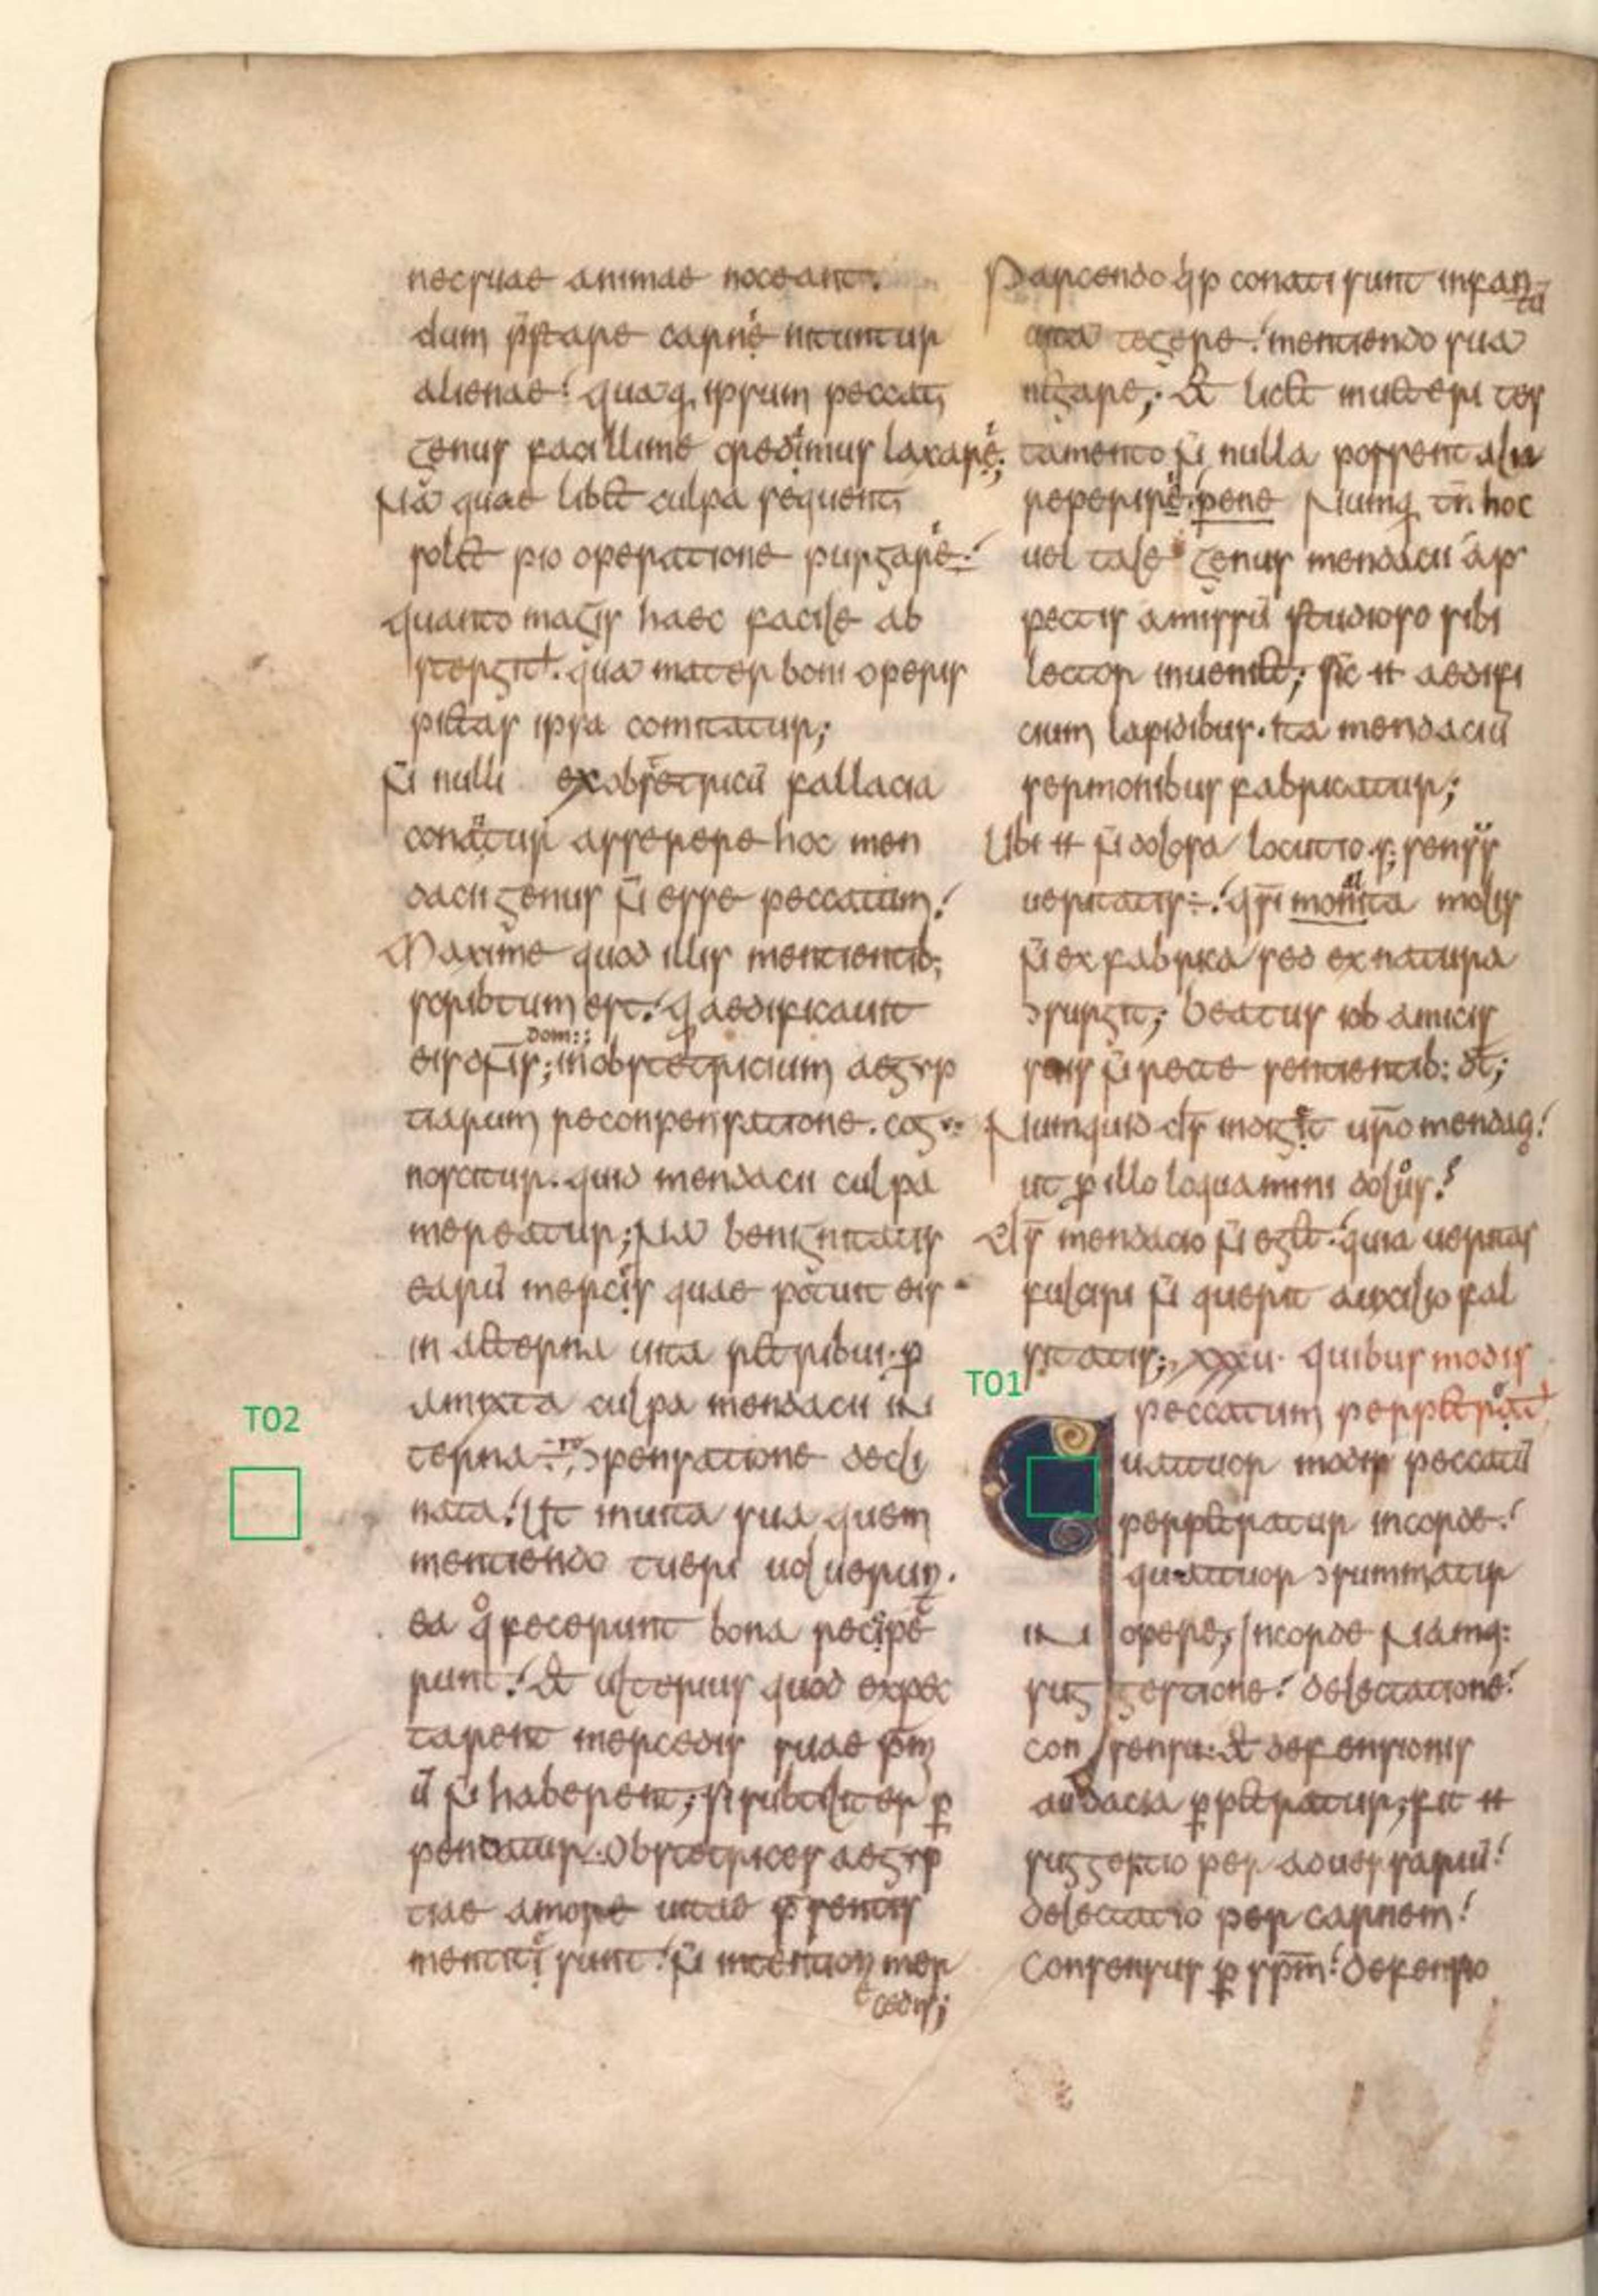 nec suae animae noceant.
dum p̄stare carnē nituntur
alienae! quaq; ipsum peccati
genus facillime credimus laxare;
Nā quae libet culpa sequenti
solet pio operatione purgare!
quanto magis haec facile ab
stergit. quā mater boni operis
pietas ipsa comitatur;
N̄ nulli ex obstetricū fallacia
conatur asserere hoc men
dacii genus n̄ esse peccatum!
Maxime quod illis mentientib;
scribtum est! q aedificauit
Dom::
eis ; in obstetricium aegyp
tiarum reconpensatione. cog
noscitur. quid mendacii culpa
mereatur; Nā benignitatis
earū mercis quae potuit eis
in aeterna uita retribui. p
amixta culpa mendacii in
terna conpensatione decli
nata! Ut in uita sua quem
mentiendo tueri uoluerunt.
ea q fecerunt bona recipe
rent! et ulterius quod expec
tarent mercedis suae p̄m
ū n̄ haberent; Si subtiliter p
pendatur. Obstetrices aegyp
tiae amore uitae p̄sentis
mentiti sunt! n̄ intention mer
cedis;
Parcendo qp conati sunt infan
tū
uitā tegere! mentiendo suā
negare; Et licet in ueteri tes
tamento n̄ nulla possent alia
reperire. pene Numq tn̄ hoc
uel tale genus mendacii ap
pectis amissū studioso sibi
lector inueniet; sic ++ aedifi
cium lapidibus. ita mendaciū
sermonibus fabricatur;
Ubi ++ n̄ dolosa locutio s; sensus
ueritatis! qsi monita molis
n̄ ex fabrica sed ex natura
ɔsurgit; beatus iob amicis
suis n̄ recte sentientib: dt;
Numquid ds indiget uro mendaci!
ut p illo loquamini dolus!
Ds mendacio n̄ eget! quia ueritas
fulciri n̄ querit auxilio fal
sitatis; xxxu. quibus modis
T01
peccatum perpetrat
T02
uattuor modis peccatū
perpetratur in corde!
quattuor ɔsummatur
in opere; In corde Namq:
suggestione! delectatione!
consensu. et defensionis
audacia ppetratur; fit ++
suggestio per aduersariū!
delectatio per carnem!
Consensus p spm! defensio